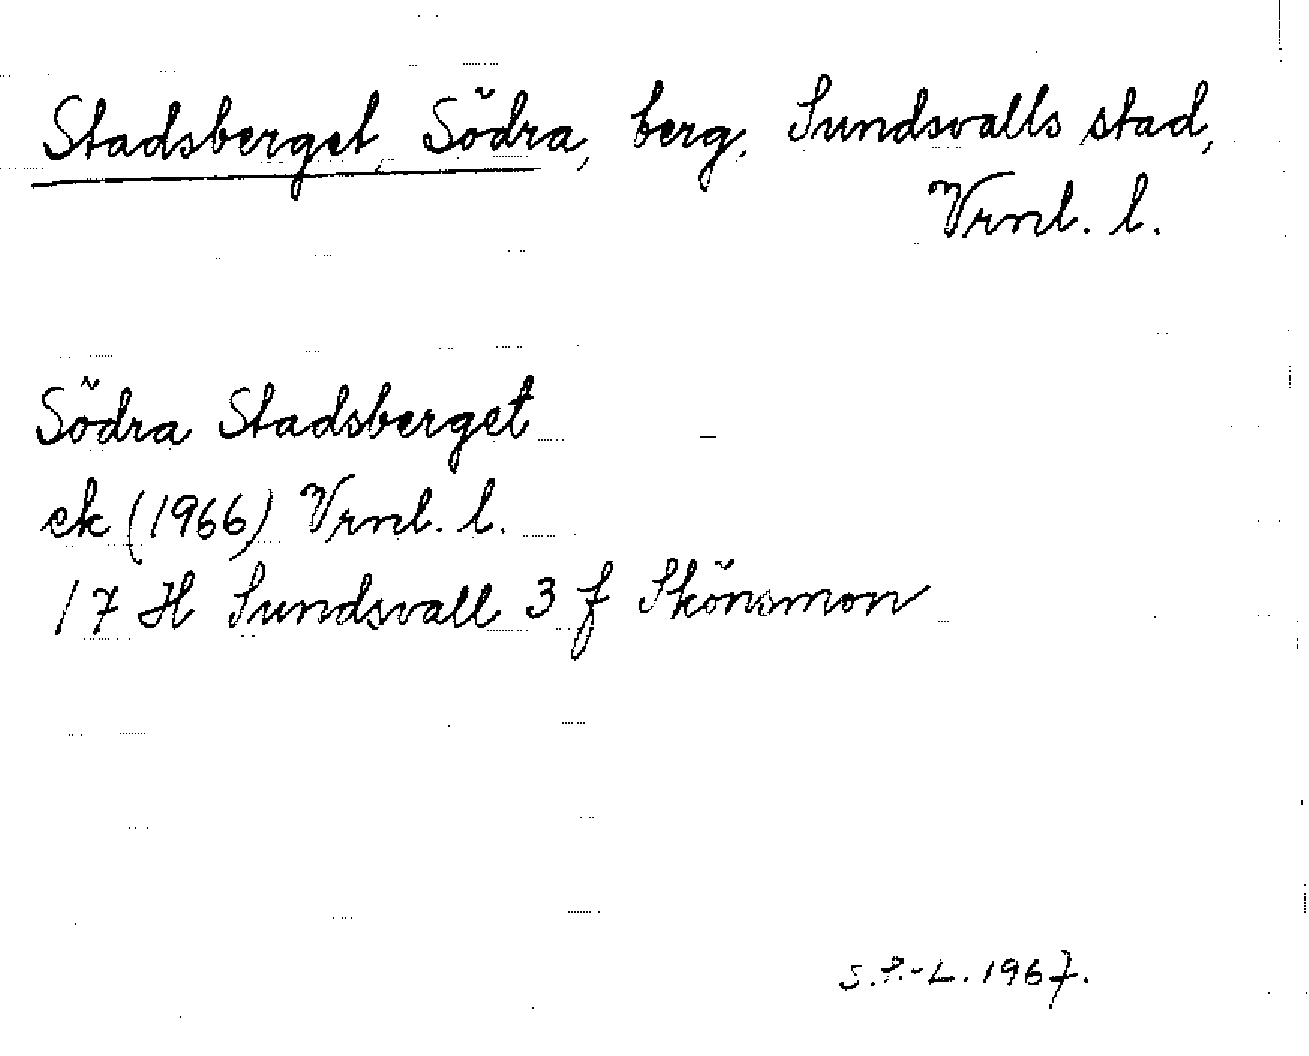 Stadsberget, Södra, berg, Sundsvalls stad,
Vrnl. l.
Södra Stadsberget
ek (1966) Vrnl. l.
17 H Sundsvall 3 f Skönsmon
S.S.-L. 1967.